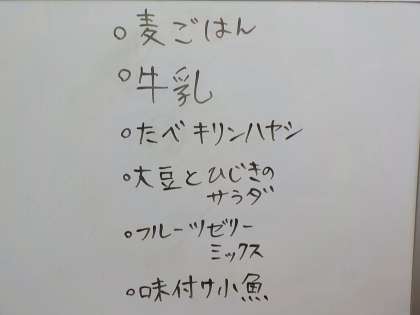 ○麦ごはん
○牛乳
○たべキリンハヤシ
○大豆とひじきの
サラダ
○フルーツゼリー
ミックス
○味付サ小魚